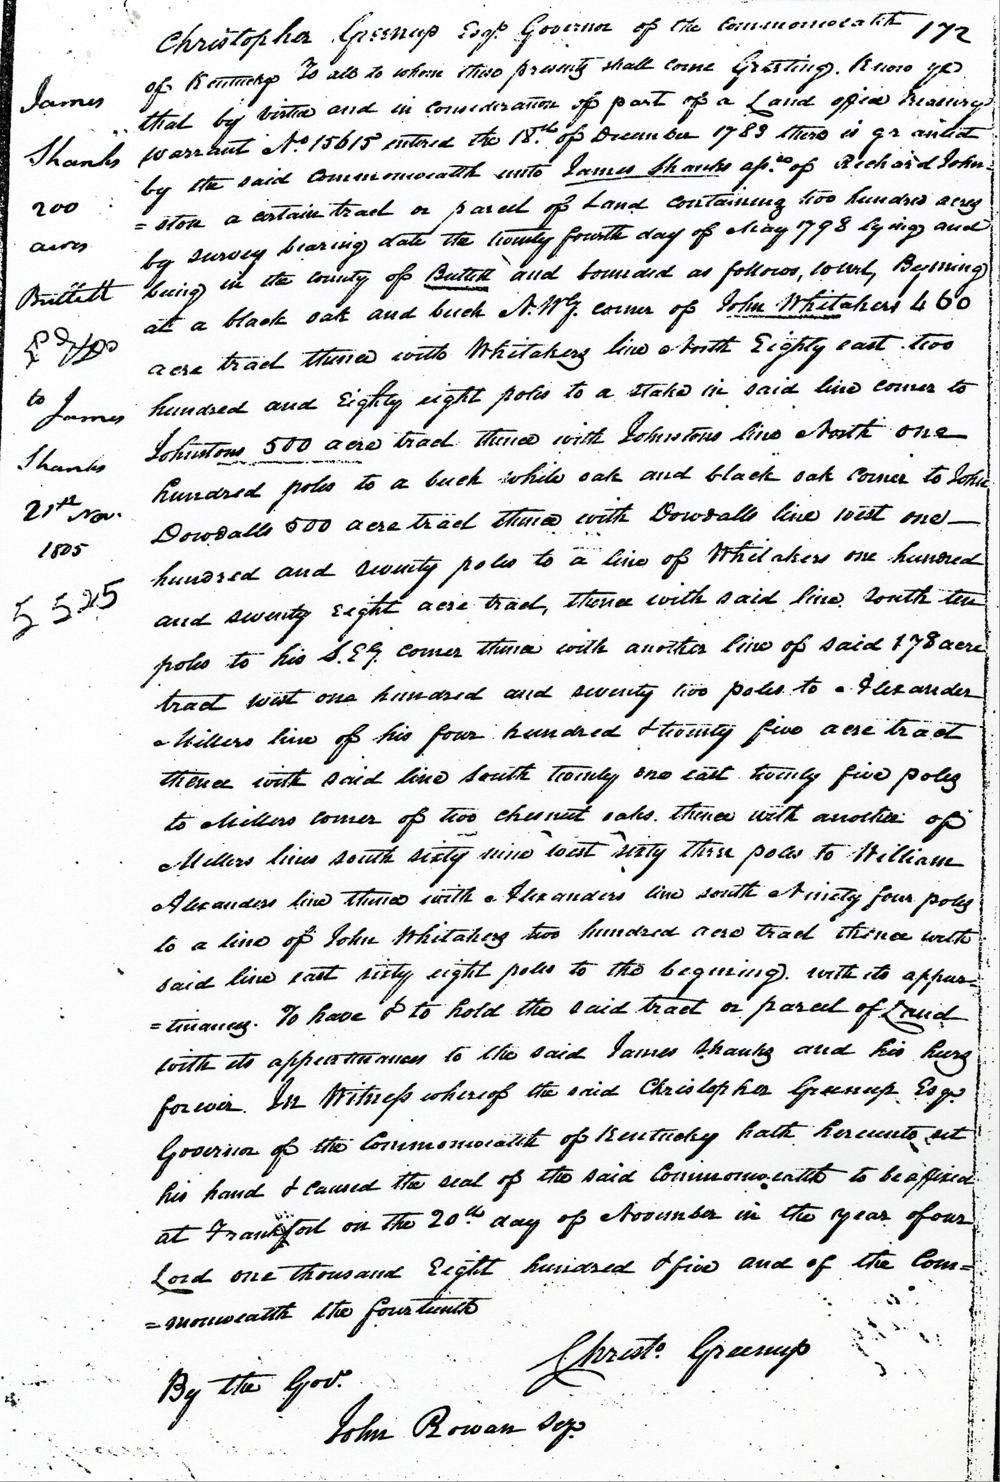 Christopher Greenup Esqr. Governor of the Commonwealth 172
of Kentucky To all to whom these presents shall come Greeting. Know ye
that by virtue and in consideration of part of a Land office Treasury
warrant No. 15615 entered the 18th. of December 1783 there is granted
by the said Commonwealth unto James Shanks of Richard John-
=ston a certain tract or parcel of Land containing two hundred acres
by survey bearing date the twenty fourth day of May 1798 lying and
being in the county of Bullitt and bounded as follows, towit, Begining
at a black oak and beech N.W. corner of John Whitakers 460
acre tract thence with Whitakers line North Eighty east two
hundred and Eighty eight poles to a stake in said line corner to
Johnstons 500 acre tract thence with Johnstons line North one
hundred poles to a beech white oak and black oak corner to John
Dowdalls 500 acre tract thence with Dowdalls line west one
hundred and seventy poles to a line of Whitakers one hundred
and seventy Eight acre tract, thence with said line South ten
poles to his S.E. corner thence with another line of said 178 acre
tract west one hundred and seventy two poles to Alexander
Millers line of his four hundred & twenty five acre tract
thence with said line South twenty one east twenty five poles
to Millers corner of two chesnut oaks. thence with another of
Millers lines south sixty nine west sixty three poles to William
Alexanders line thence with Alexanders line south Ninety four poles
to a line of John Whitakers two hundred acre tract thence with
said line east sixty eight poles to the begining. with its appur=
=tinances. To have & to hold the said tract or parcel of Land
with its appurtinances to the said James Shanks and his heirs
forever. In Witness whereof the said Christopher Greenup Esqr.
Governor of the Commonwealth of Kentucky hath hereunto set
his hand & caused the seal of the said Commonwealth to be affixed
at Frankfort on the 20th day of November in the year of our
Lord one thousand Eight hundred & five and of the Com=
=monwealth the fourteenth
Christo. Greenup
By the Gov.
John Rowan Sey.
James
Shanks
200
acres
Bullitt
to James
Shanks
21st Nov.
1805
5525